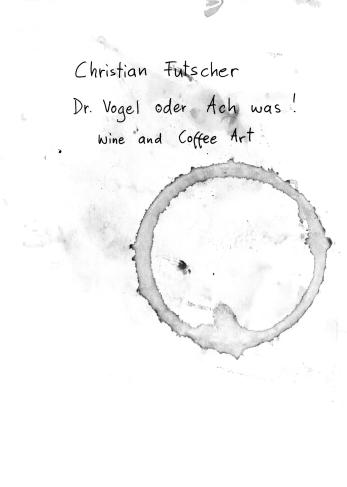 Christian Futscher
Dr. Vogel oder Ach was!
Wine and Coffee Art